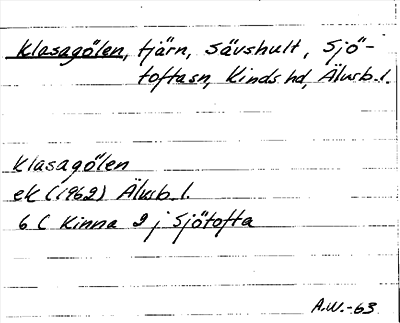 Klasagölen, tjärn, Sävshult, Sjö-
toftasn, Kinds hd, Älvsb. l.
Klasagölen
ek (1962) Älvsb. l.
6 C Kinna 2 j Sjötofta
A.W.-63